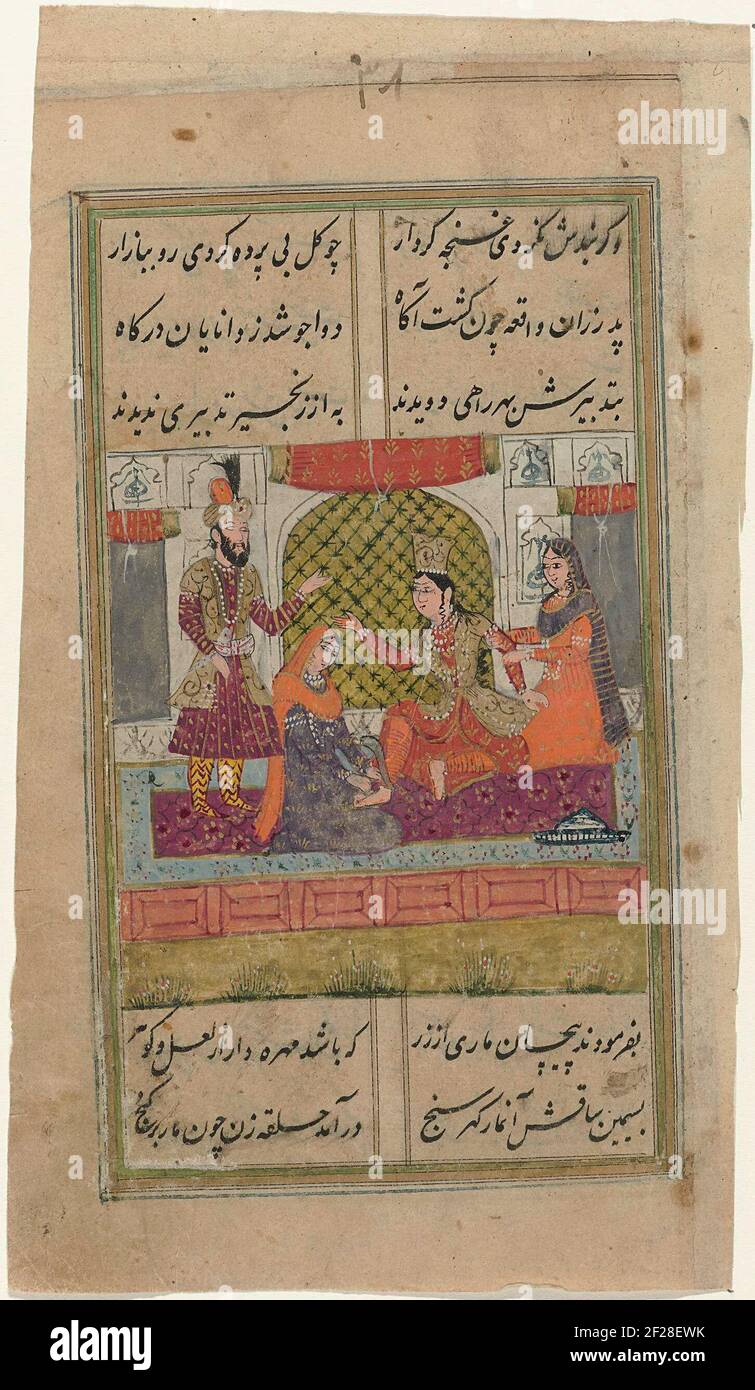 ۳۸
وگر بندش نکردی غنچه کردار چو کل بی پرده کردی رو ببازار
پدر زان واقعه چون کشت آکاه دواجو شد ز دانایان درکاه
بتدبیرش بهر راهی دویدند به از زنجیر تدبیری ندیدند
بفرمودند پیچان ماری از زر که باشد مهره دار از لعل و کوهر
بسیمین ساقش آنمار کهر سنج درآمد حلقه زن چون مار بر کنج
alamy
alamy
Image ID: 2F28EWK
www.alamy.com